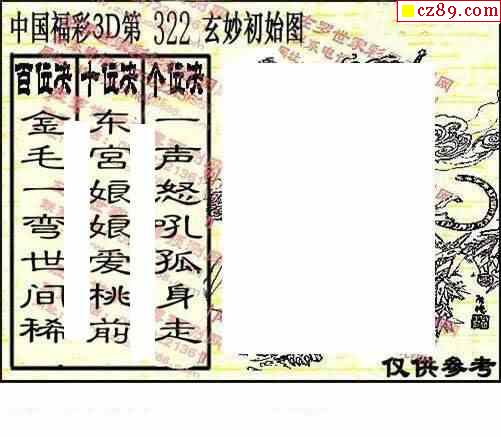 cz89.com
中国福彩3D第 322 玄妙初始图
百位决 十位决 个位决
金毛一弯世间稀
东宫娘娘爱桃前
一声怒吼孤身走
仅供参考